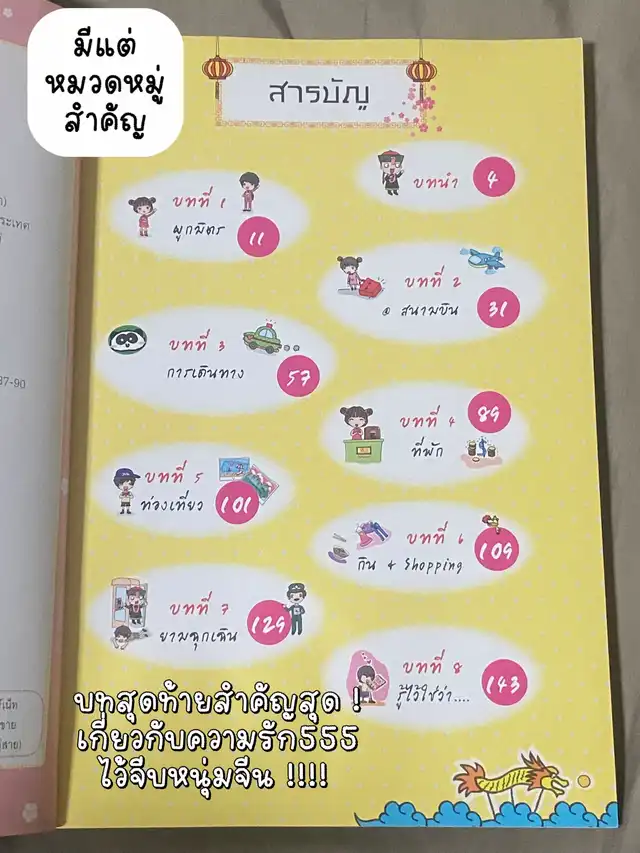 มีแต่
หมวดหมู่
สำคัญ
สารบัญ
บทนำ 4
บทที่ 1
ผูกมิตร 11
บทที่ 2
@ สนามบิน 31
บทที่ 3
การเดินทาง 57
บทที่ 4 89
ที่พัก
บทที่ 5
ท่องเที่ยว 101
บทที่ 6 109
กิน & Shopping
บทที่ 7 129
ยามฉุกเฉิน
บทที่ 8 143
รู้ไว้ใช่ว่า....
บทสุดท้ายสำคัญสุด !
เกี่ยวกับความรัก555
ไว้จีบหนุ่มจีน !!!!
ระเทศ
37-90